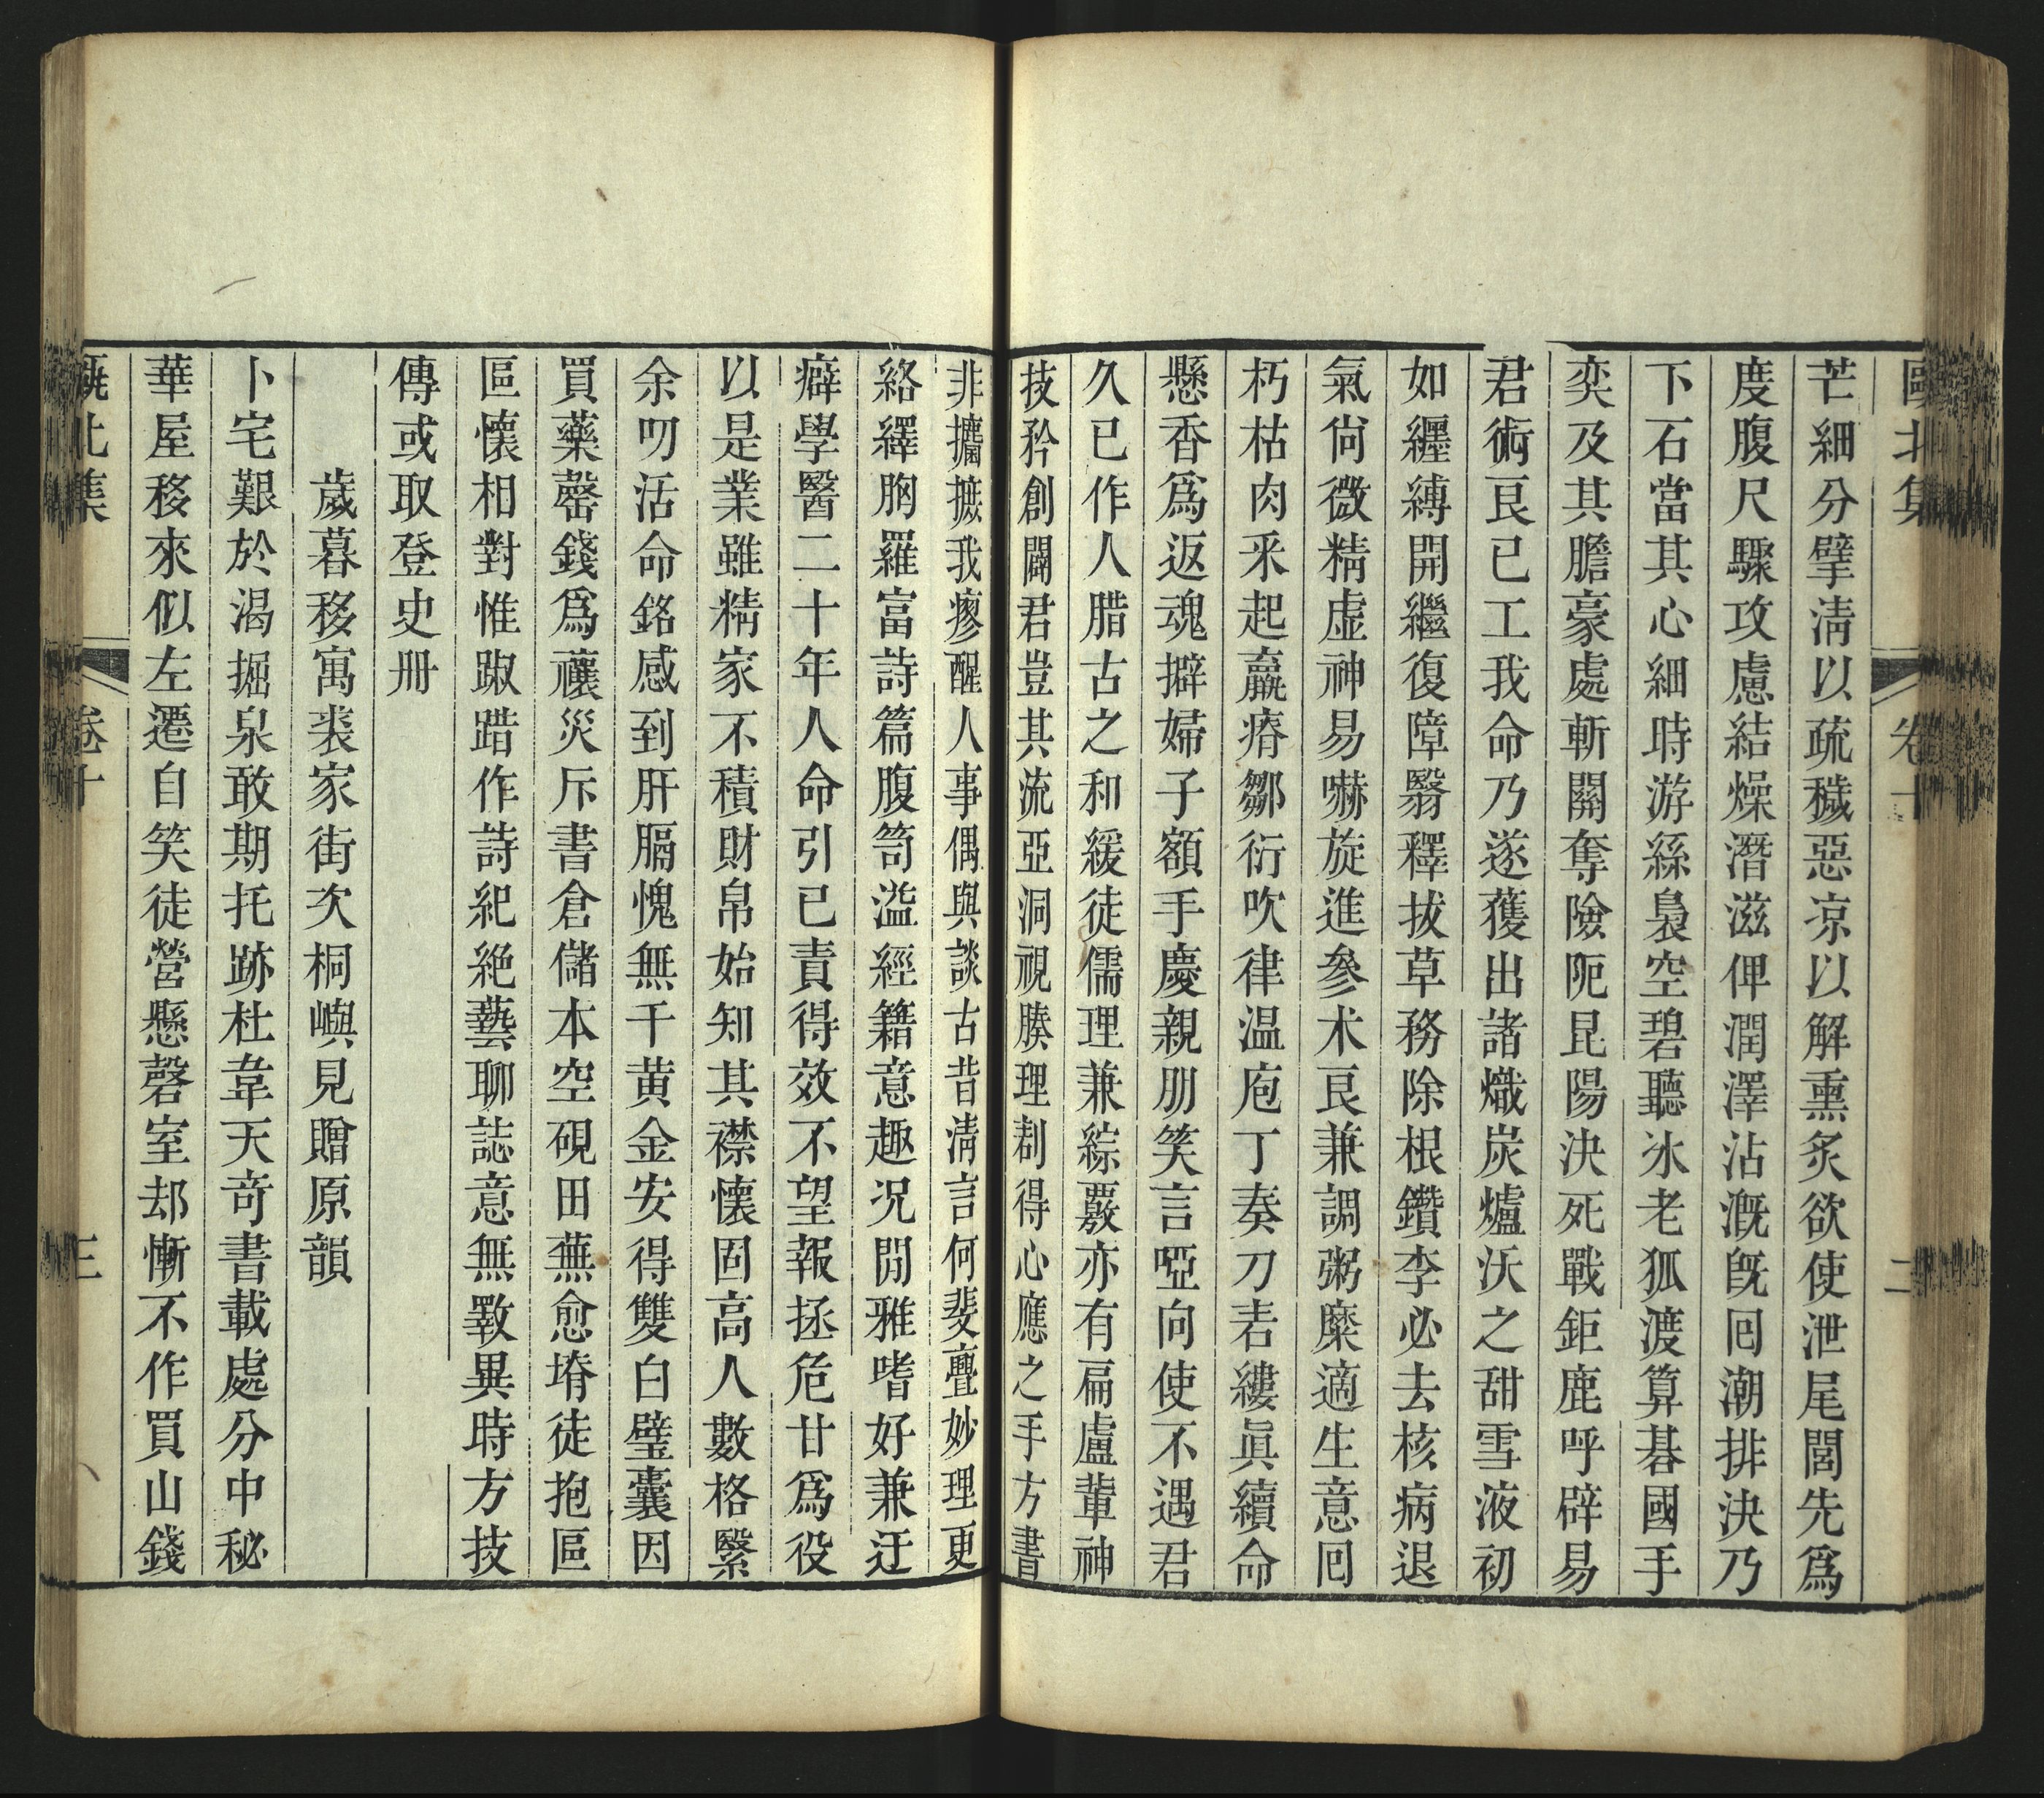 甌北集 卷十 二
芒細分擘淸以疏穢惡凉以解熏炙欲使泄尾閭先爲
度腹尺驟攻慮結燥潛滋俾潤澤沾漑旣囘潮排決乃
下石當其心細時游絲裊空碧聽冰老狐渡算碁國手
奕及其膽豪處斬關奪險阨昆陽決死戰鉅鹿呼辟易
君術良已工我命乃遂獲出諸熾炭爐沃之甜雪液初
如纒縛開繼復障翳釋拔草務除根鑽李必去核病退
氣尙微精虛神易嚇旋進參朮良兼調粥糜適生意囘
朽枯肉釆起羸瘠鄒衍吹律温庖丁奏刀砉縷眞續命
懸香爲返魂擗婦子額手慶親朋笑言啞向使不遇君
久已作人腊古之和緩徒儒理兼綜覈亦有扁盧輩神
技矜創闢君豈其流亞洞視腠理割得心應之手方書
非攟摭我瘳醒人事偶與談古昔淸言何斐亹妙理更
絡繹胸羅富詩篇腹笥溢經籍意趣況閒雅嗜好兼迂
癖學醫二十年人命引已責得效不望報拯危甘爲役
以是業雖精家不積財帛始知其襟懷固高人數格緊
余叨活命銘感到肝膈愧無千黄金安得雙白璧囊因
買藥罄錢爲禳災斥書倉儲本空硯田蕪愈塉徒抱區
區懷相對惟踧踖作詩紀絶藝聊誌意無斁異時方技
傳或取登史册
歲暮移寓裘家街次桐嶼見贈原韻
卜宅艱於渴掘泉敢期托跡杜韋天奇書載處分中秘
華屋移來似左遷自笑徒營懸磬室却慚不作買山錢
甌北集 卷十 三